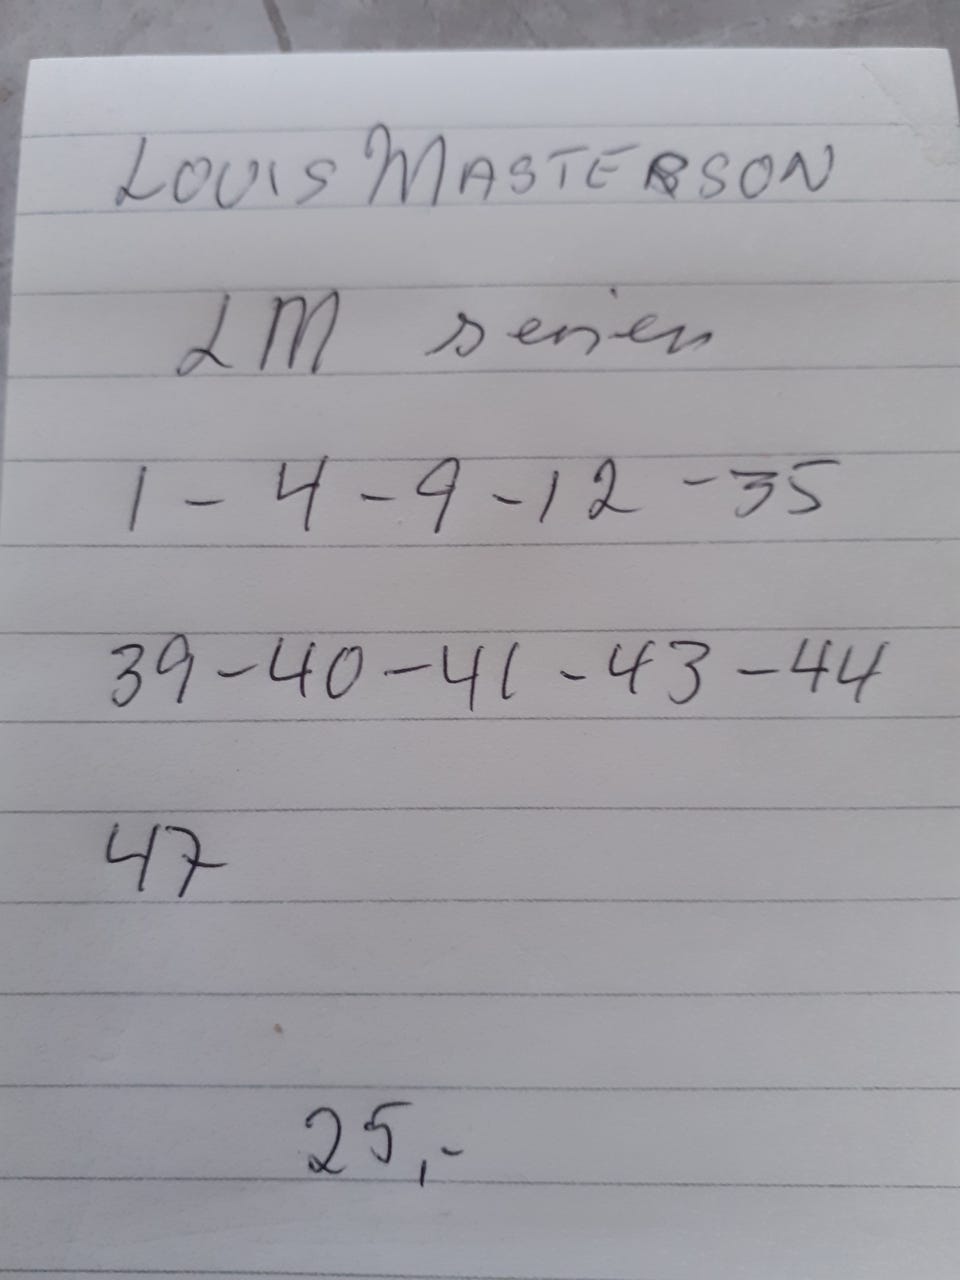 LOUIS MASTERSON
LM serien
1 - 4 - 9 - 12 - 35
39 - 40 - 41 - 43 - 44
47
25,-